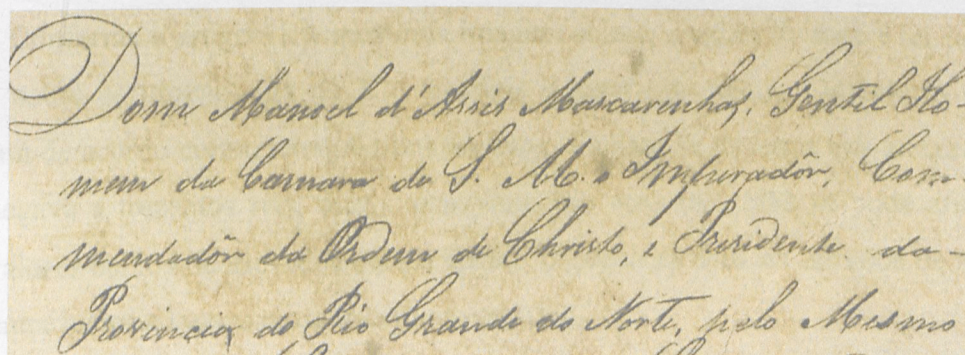 Dom Manoel d'Assis Mascarenhas, Gentil Ho-
mem da Camara de S. M. o Imperadôr, Com-
mendadôr da Ordem de Christo, e Presidente da
Provincia do Rio Grande do Norte, pelo Mesmo